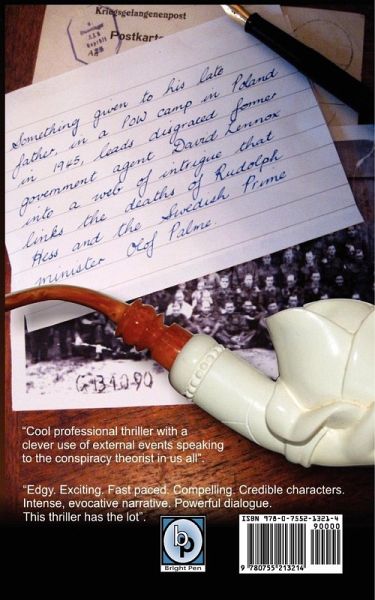 Kriegsgefangenenpost
Postkart
Something given to his late
father, in a POW camp in Poland
in 1945, leads disgraced former
government agent David Lennox
into a web of intrigue that
links the deaths of Rudolph
Hess and the Swedish Prime
minister Olof Palme.
“Cool professional thriller with a
clever use of external events speaking
to the conspiracy theorist in us all”.
“Edgy. Exciting. Fast paced. Compelling. Credible characters.
Intense, evocative narrative. Powerful dialogue.
This thriller has the lot”.
bp
Bright Pen
ISBN 978-0-7552-1321-4
90000
9 780755 213214